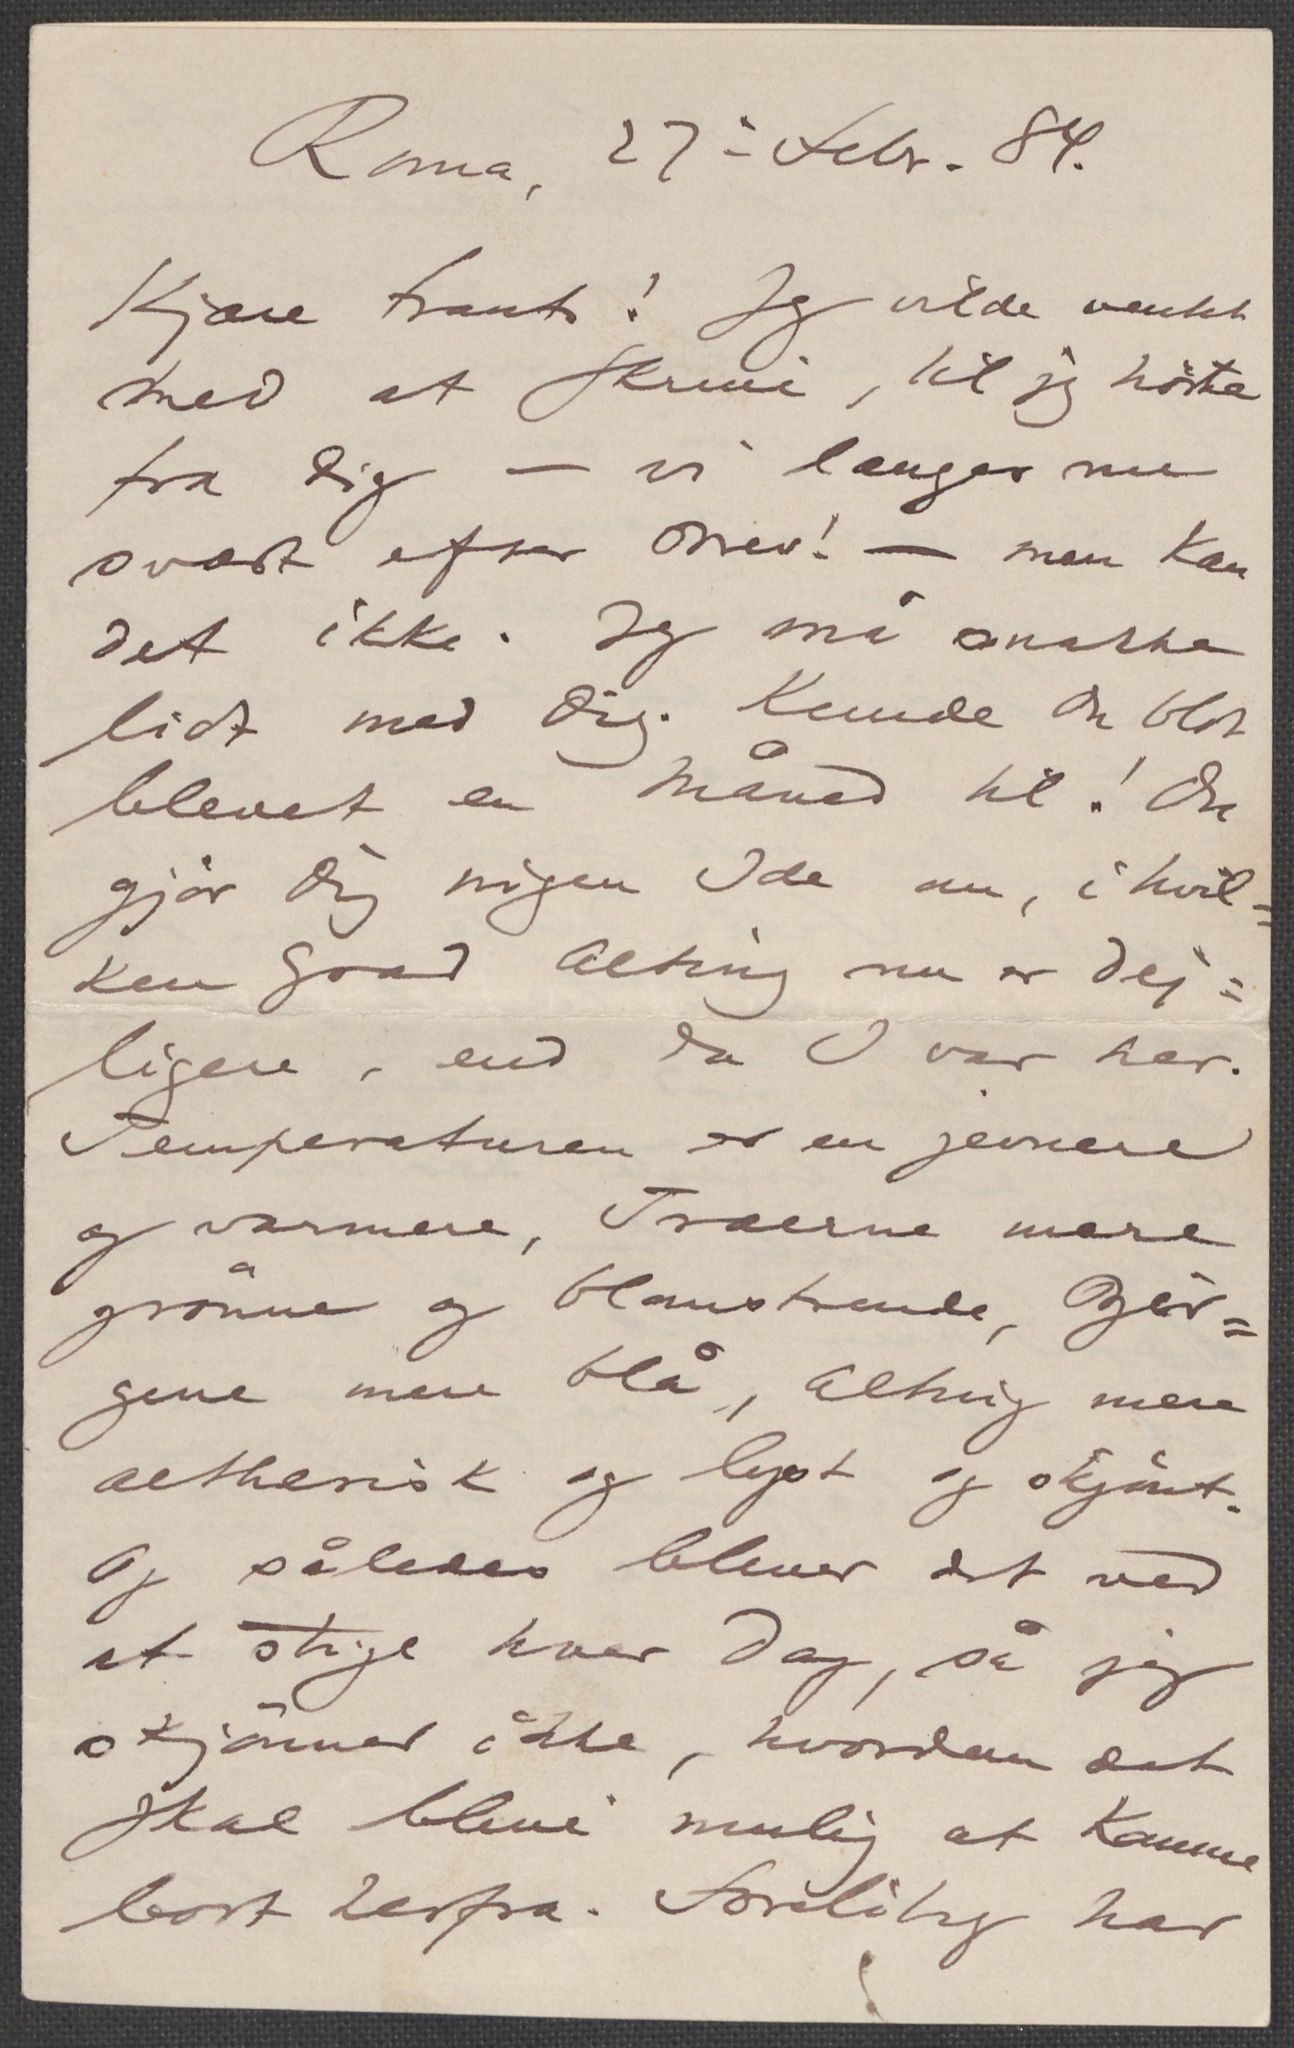 Roma, 27 Febr. 84.
Kjære Frants! Jeg vilde ventet
med at skrive, til jeg hörte
fra Dig — vi længes nu
svært efter Brev! — men kan
det ikke. Jeg må snakke
lidt med Dig. Kunde Du blot
blevet en Måned til! Du
gjör Dig ingen Ide om, i hvil=
ken Grad Alting nu er dej=
ligere, end da I var her.
Temperaturen er en jevnere
og varmere, Træerne mere
grönne og blomstrende, Bjer=
gene mere blå, Alting mere
aetherisk og lyst og skjönt.
Og således bliver det ved
at stige hver Dag, så jeg
skjönner ikke, hvordan det
skal blive mulig at komme
bort herfra. Forelöbig har